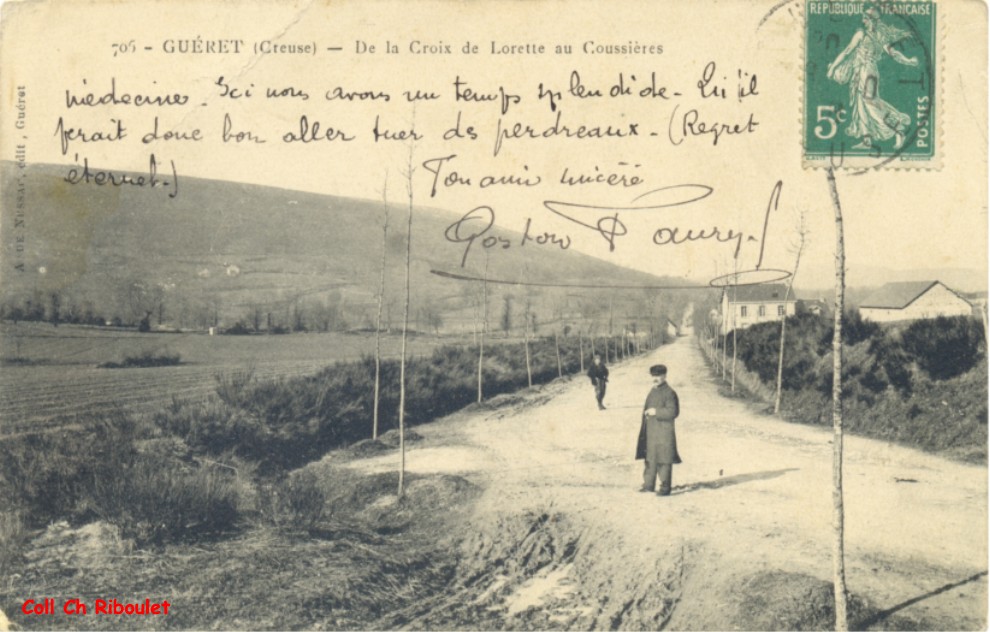 RÉPUBLIQUE FRANÇAISE
705 - GUÉRET (Creuse) — De la Croix de Lorette au Coussières
5c
POSTES
A. DE NUSSAC, édit., Guéret
médecine. Ici nous avons un temps splendide. Qu'il
ferait donc bon aller tuer des perdreaux. (Regret
éternel.) Ton ami sincère
Gaston
Coll Ch Riboulet